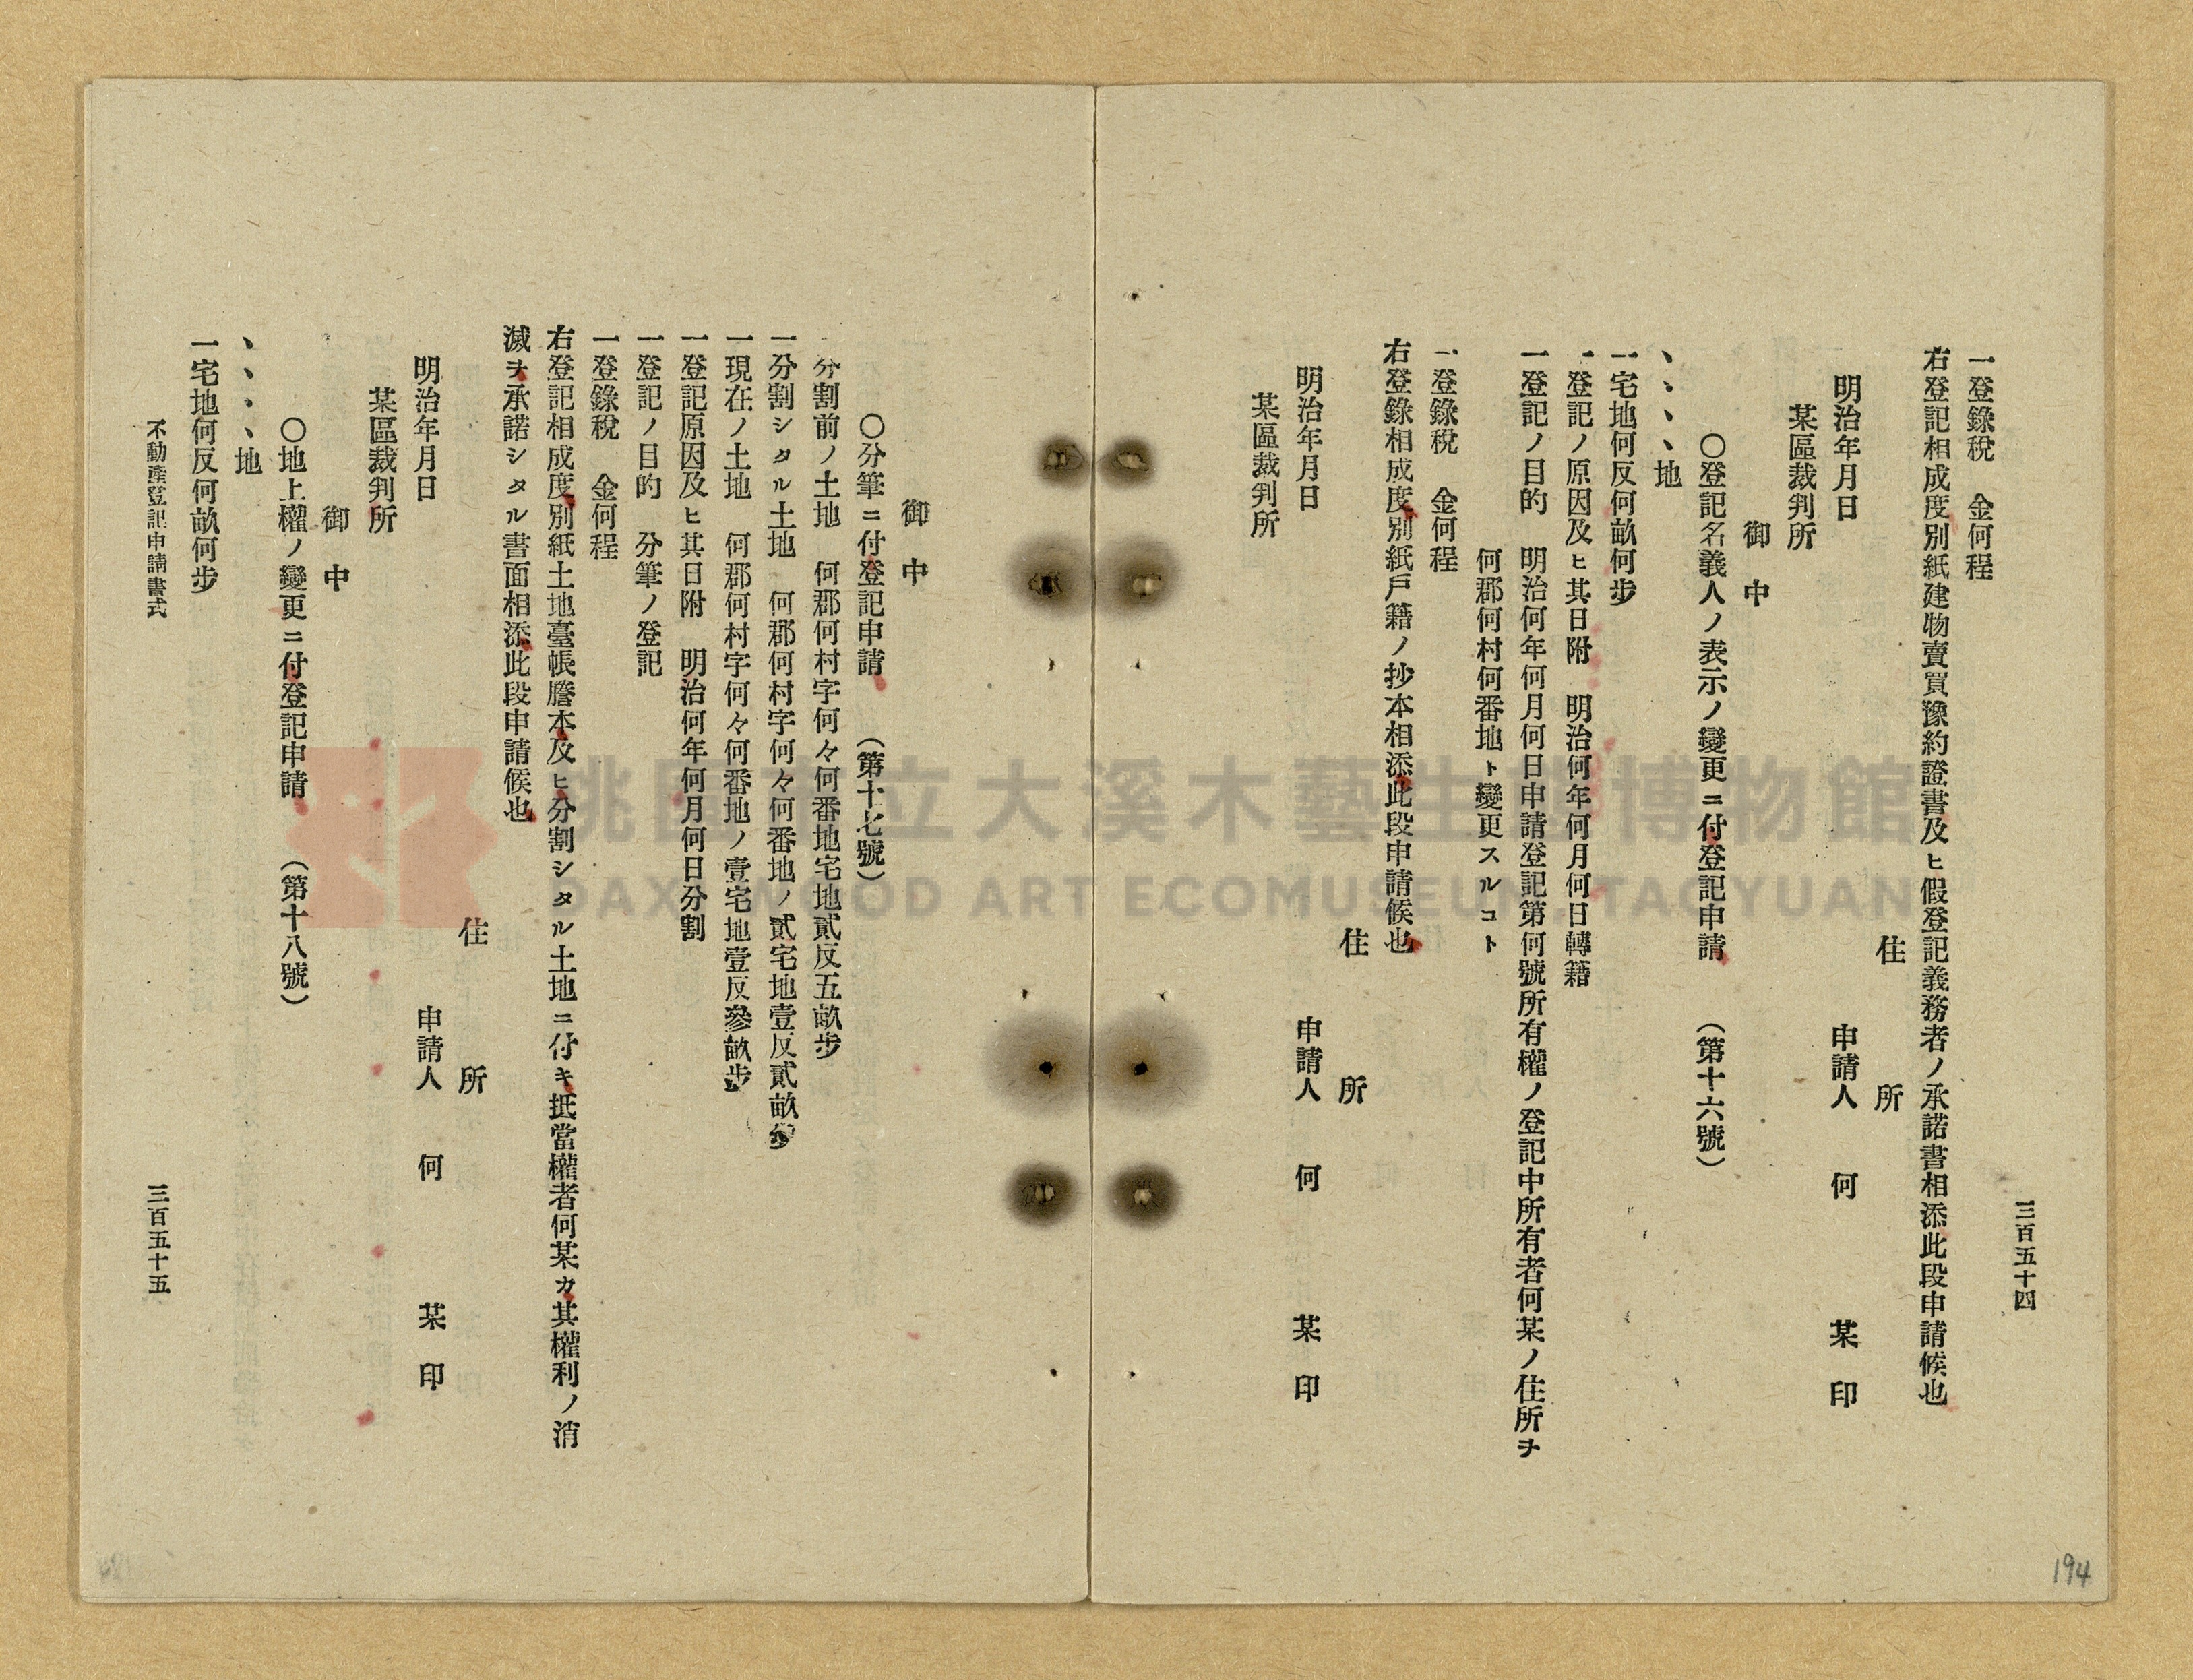 三百五十四
一登錄稅　金何程
右登記相成度別紙建物賣買豫約證書及ヒ假登記義務者ノ承諾書相添此段申請候也
住　所
明治年月日　申請人　何　某　印
某區裁判所
御　中
○登記名義人ノ表示ノ變更ニ付登記申請　（第十六號）
、、、、地
一宅地何反何畝何步
一登記ノ原因及ヒ其日附　明治何年何月何日轉籍
一登記ノ目的　明治何年何月何日申請登記第何號所有權ノ登記中所有者何某ノ住所ヲ
何郡何村何番地ト變更スルコト
一登錄稅　金何程
右登錄相成度別紙戶籍ノ抄本相添此段申請候也
住　所
明治年月日　申請人　何　某　印
某區裁判所
194
御　中
○分筆ニ付登記申請　（第十七號）
一分割前ノ土地　何郡何村字何々何番地宅地貳反五畝步
一分割シタル土地　何郡何村字何々何番地ノ貳宅地壹反貳畝步
一現在ノ土地　何郡何村字何々何番地ノ壹宅地壹反參畝步
一登記原因及ヒ其日附　明治何年何月何日分割
一登記ノ目的　分筆ノ登記
一登錄稅　金何程
右登記相成度別紙土地臺帳謄本及ヒ分割シタル土地ニ付キ抵當權者何某カ其權利ノ消
滅ヲ承諾シタル書面相添此段申請候也
住　所
明治年月日　申請人　何　某　印
某區裁判所
御　中
○地上權ノ變更ニ付登記申請　（第十八號）
、、、、地
一宅地何反何畝何步
不動產登記申請書式
三百五十五
桃園市立大溪木藝生態博物館
DAXI WOOD ART ECOMUSEUM, TAOYUAN